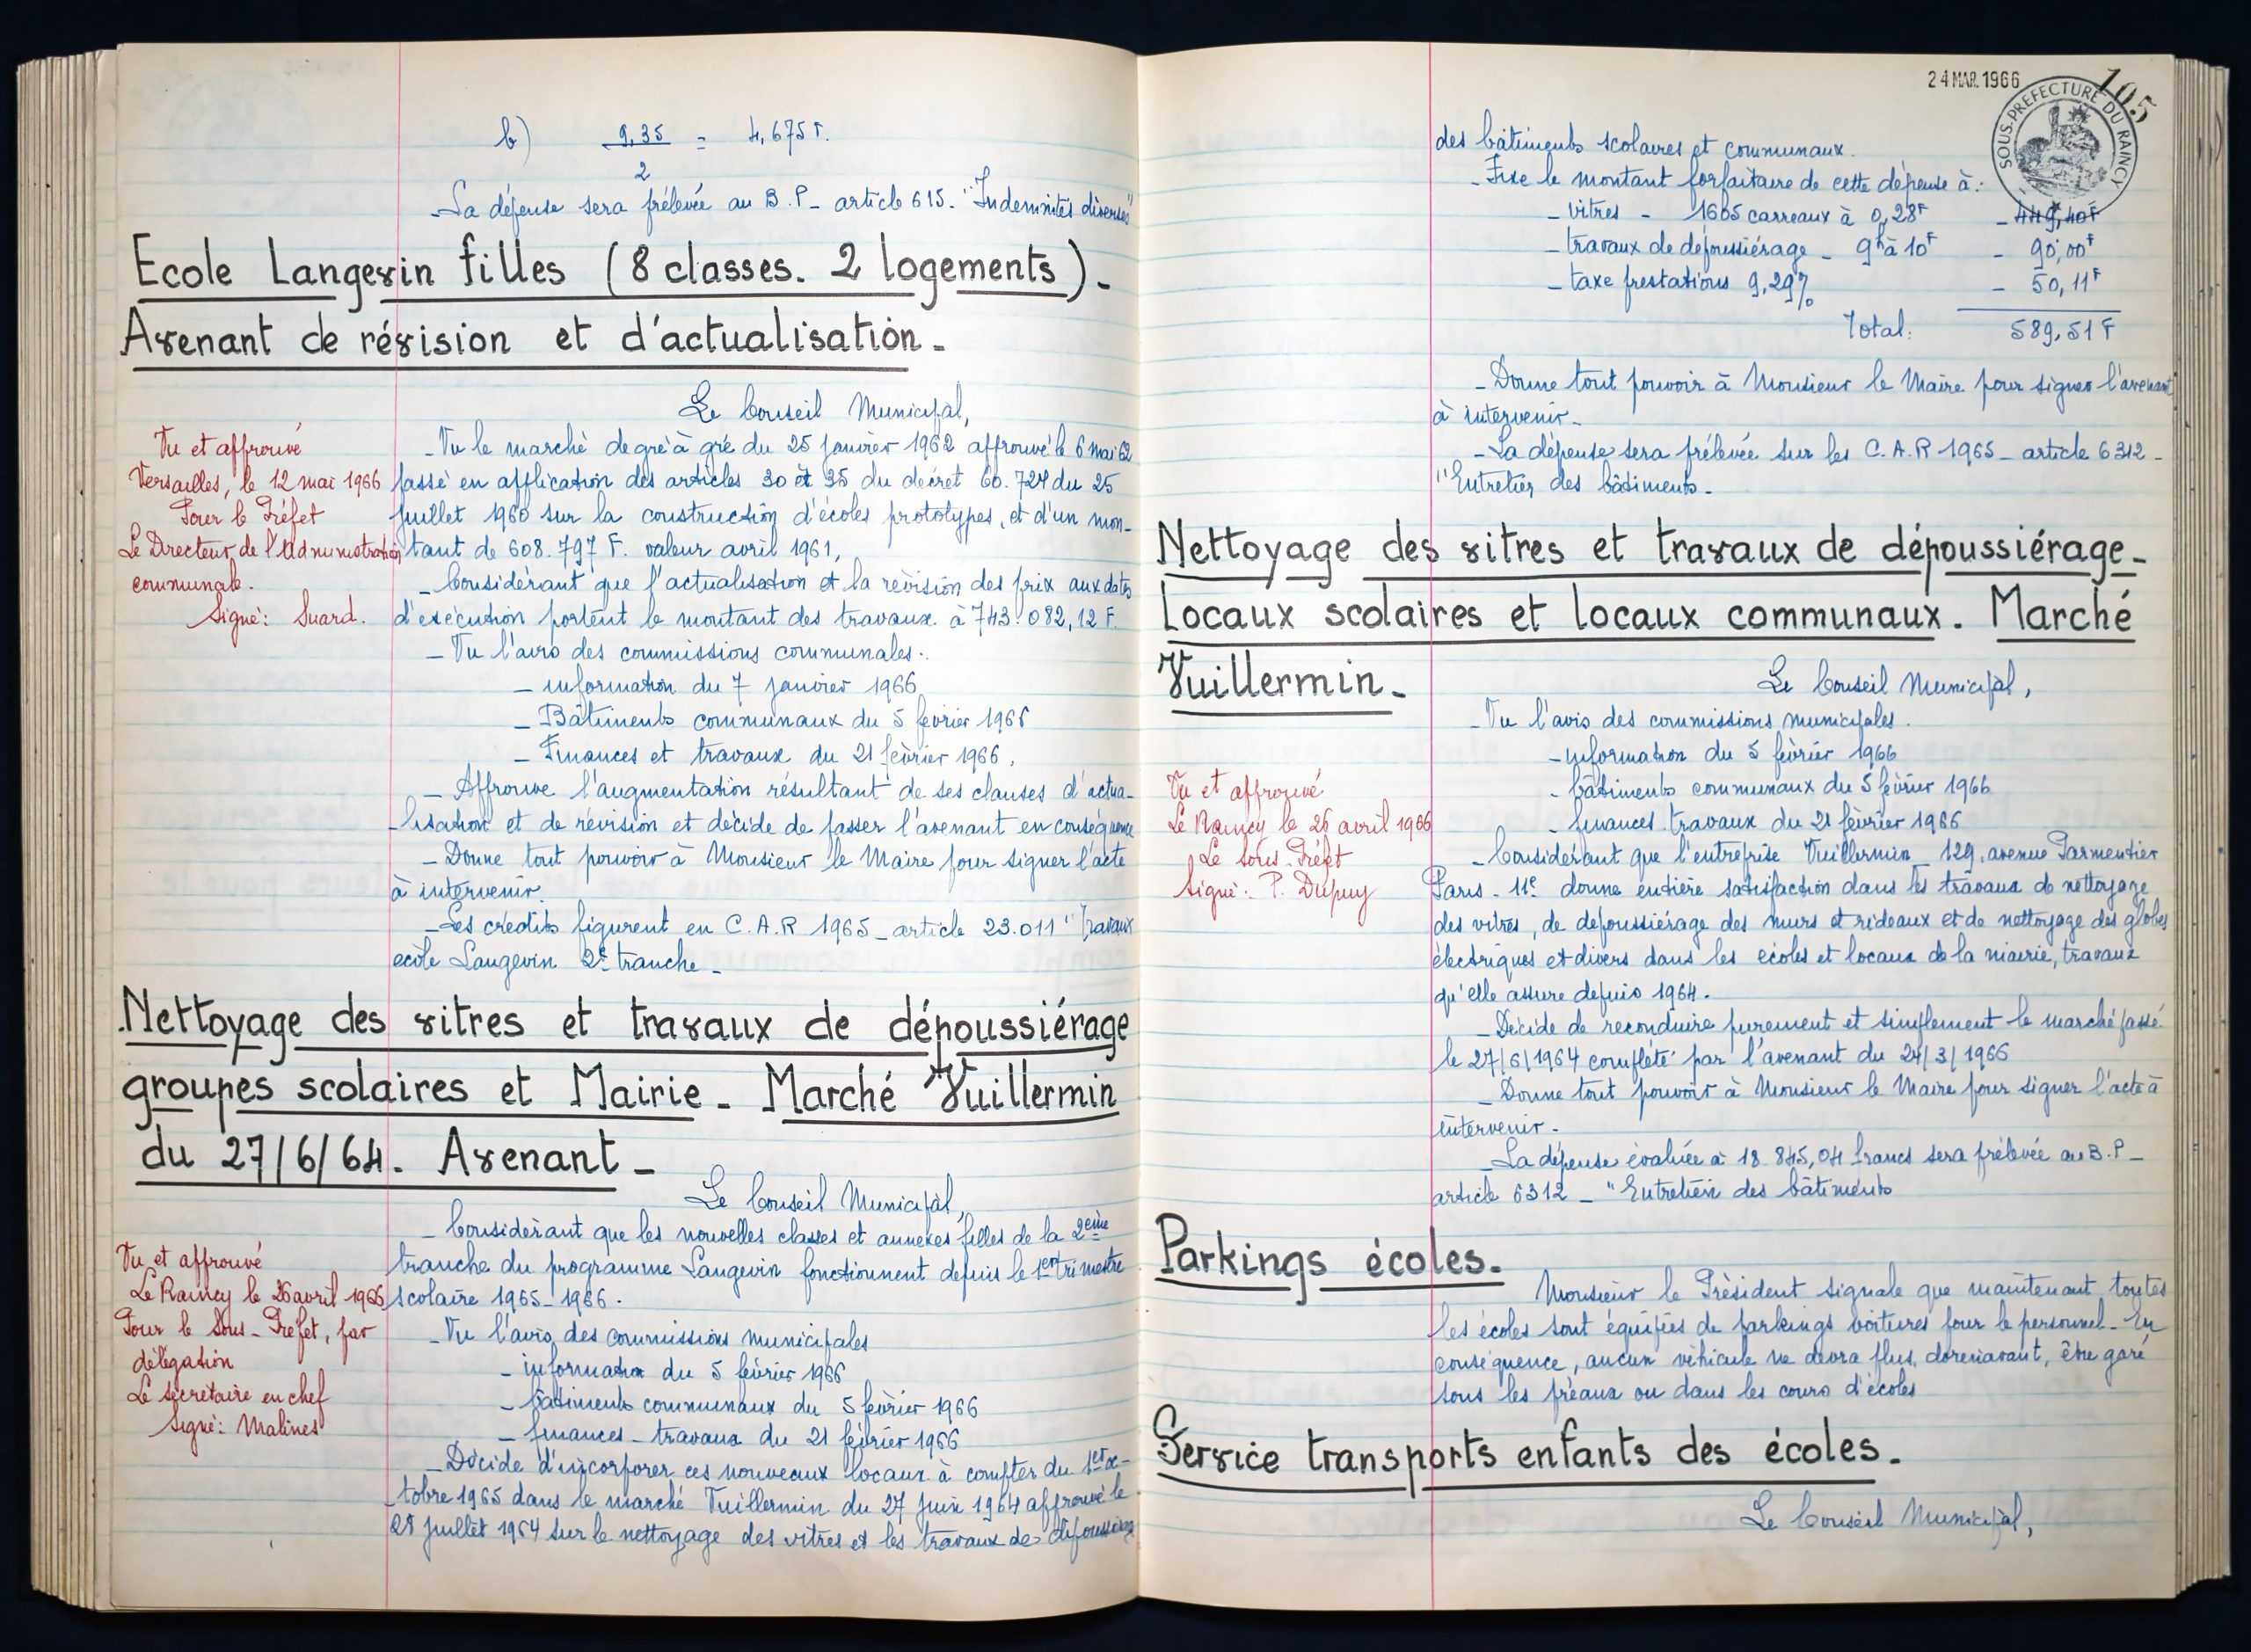 b) 9,35 / 2 = 4,675 F.
_ La dépense sera prélevée au B.P _ article 615 _ "Indemnités diverses"
Ecole Langevin filles (8 classes. 2 logements) _
Avenant de révision et d'actualisation _
Le Conseil Municipal,
Vu et approuvé
Versailles, le 12 mai 1966
Pour le Préfet
Le Directeur de l'Administration
communale.
Signé: Suard.
_ Vu le marché de gré à gré du 25 Janvier 1962 approuvé le 6 mai 62
passé en application des articles 30 et 35 du décret 60.724 du 25
Juillet 1960 sur la construction d'écoles prototypes, et d'un mon-
tant de 608.797 F. valeur avril 1961,
_ Considérant que l'actualisation et la révision des prix aux dates
d'exécution portent le montant des travaux à 743.082,12 F
_ Vu l'avis des commissions communales.
_ information du 7 janvier 1966
_ Bâtiments communaux du 5 février 1966
_ Finances et travaux du 21 février 1966.
_ Approuve l'augmentation résultant de ses clauses d'actua-
lisation et de révision et décide de passer l'avenant en conséquence
_ Donne tout pouvoir à Monsieur le Maire pour signer l'acte
à intervenir.
_ Les crédits figurent en C.A.R 1965 _ article 23.011 "Travaux
école Langevin 2e tranche _
Nettoyage des vitres et travaux de dépoussiérage
groupes scolaires et Mairie _ Marché Vuillermin
du 27/6/64. Avenant _
Le Conseil Municipal,
Vu et approuvé
Le Raincy le 26 avril 1966
Pour le Sous-Préfet, par
délégation
Le secrétaire en chef
Signé: Malines
_ Considérant que les nouvelles classes et annexes filles de la 2ème
tranche du programme Langevin fonctionnent depuis le 1er trimestre
scolaire 1965-1966.
_ Vu l'avis des commissions municipales
_ information du 5 février 1966
_ bâtiments communaux du 5 février 1966
_ finances _ travaux du 21 février 1966
_ Décide d'incorporer ces nouveaux locaux à compter du 1er oc-
tobre 1965 dans le marché Vuillermin du 27 Juin 1964 approuvé le
28 juillet 1964 sur le nettoyage des vitres et les travaux de dépoussiérage
24 MAR. 1966
105
SOUS-PREFECTURE DU RAINCY
des bâtiments scolaires et communaux.
_ Fixe le montant forfaitaire de cette dépense à:
_ vitres _ 1605 carreaux à 0,28F _ 449,40F
_ travaux de dépoussiérage _ 9h à 10F _ 90,00F
_ taxe prestations 9,29% _ 50,11F
Total: 589,51 F
_ Donne tout pouvoir à Monsieur le Maire pour signer l'avenant
à intervenir _
_ La dépense sera prélevée sur les C.A.R 1965 _ article 6312 _
"Entretien des bâtiments _
Nettoyage des vitres et travaux de dépoussiérage _
Locaux scolaires et locaux communaux. Marché
Vuillermin _
Le Conseil Municipal,
Vu et approuvé
Le Raincy le 26 avril 1966
Le Sous-Préfet
Signé: P. Dupuy
_ Vu l'avis des commissions municipales.
_ information du 5 février 1966
_ bâtiments communaux du 5 février 1966
_ finances. travaux du 21 février 1966
_ Considérant que l'entreprise Vuillermin _ 129, avenue Parmentier
Paris _ 11e donne entière satisfaction dans les travaux de nettoyage
des vitres, de dépoussiérage des murs et rideaux et de nettoyage des globes
électriques et divers dans les écoles et locaux de la mairie, travaux
qu'elle assure depuis 1964.
_ Décide de reconduire purement et simplement le marché passé
le 27/6/1964 complété par l'avenant du 24/3/1966
_ Donne tout pouvoir à Monsieur le Maire pour signer l'acte à
intervenir _
_ La dépense évaluée à 18 845,04 francs sera prélevée au B.P _
article 6312 _ "Entretien des bâtiments
Parkings écoles.
Monsieur le Président signale que maintenant toutes
les écoles sont équipées de parkings voitures pour le personnel _ En
conséquence, aucun véhicule ne devra plus, dorénavant, être garé
sous les préaux ou dans les cours d'écoles
Service transports enfants des écoles.
Le Conseil Municipal,